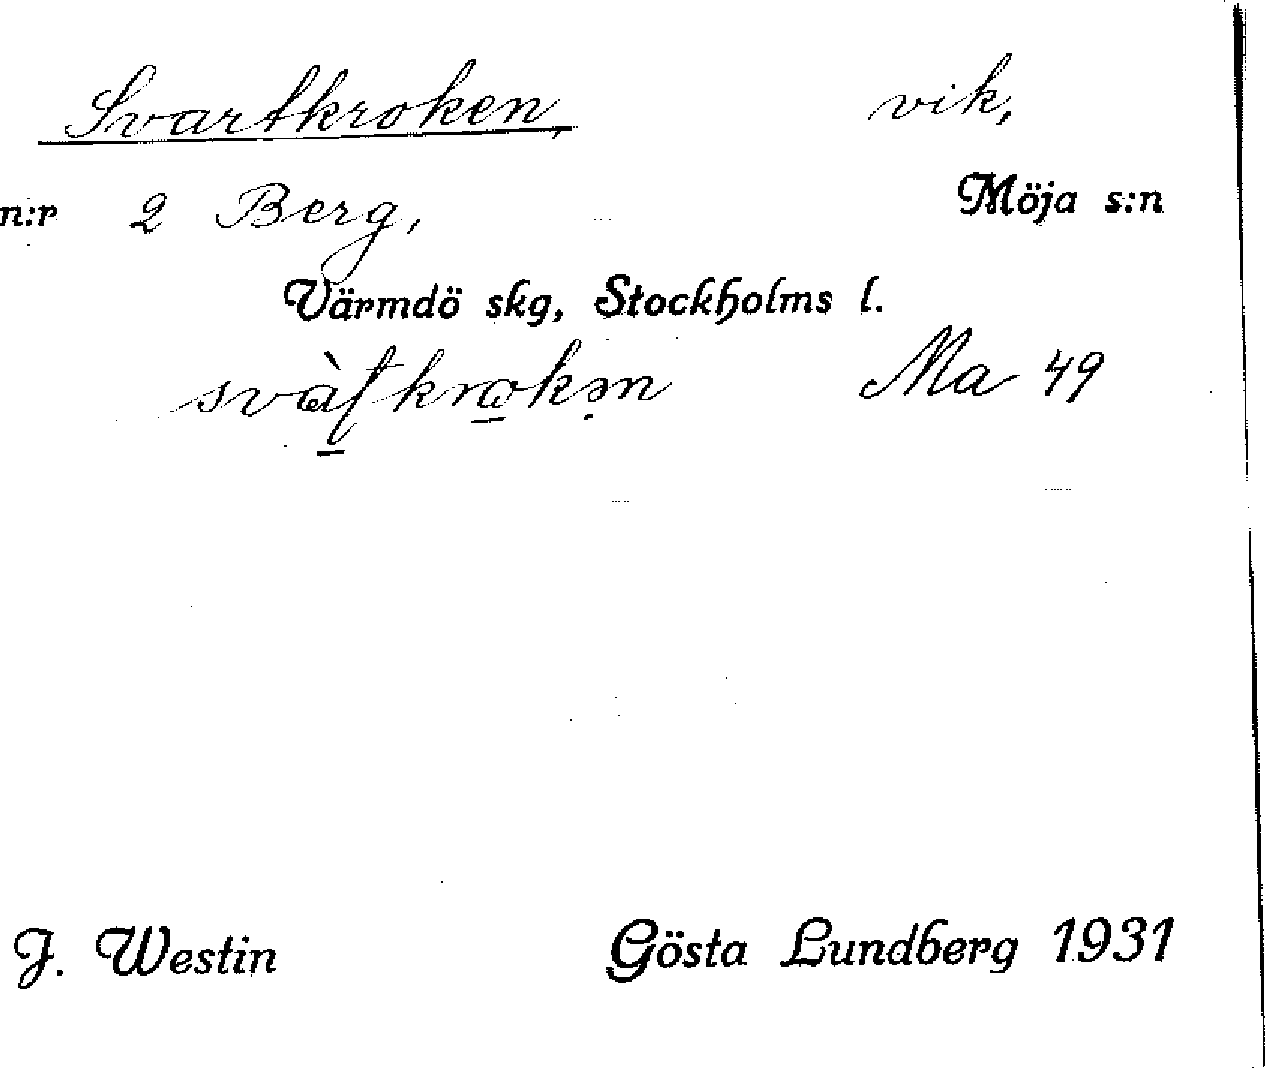 Svartkroken, vik,
n:r 2 Berg, Möja s:n
Värmdö skg, Stockholms l.
Ma 49
J. Westin Gösta Lundberg 1931